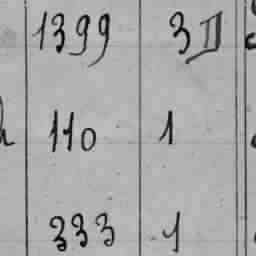 1399 3 II
110 1
333 1